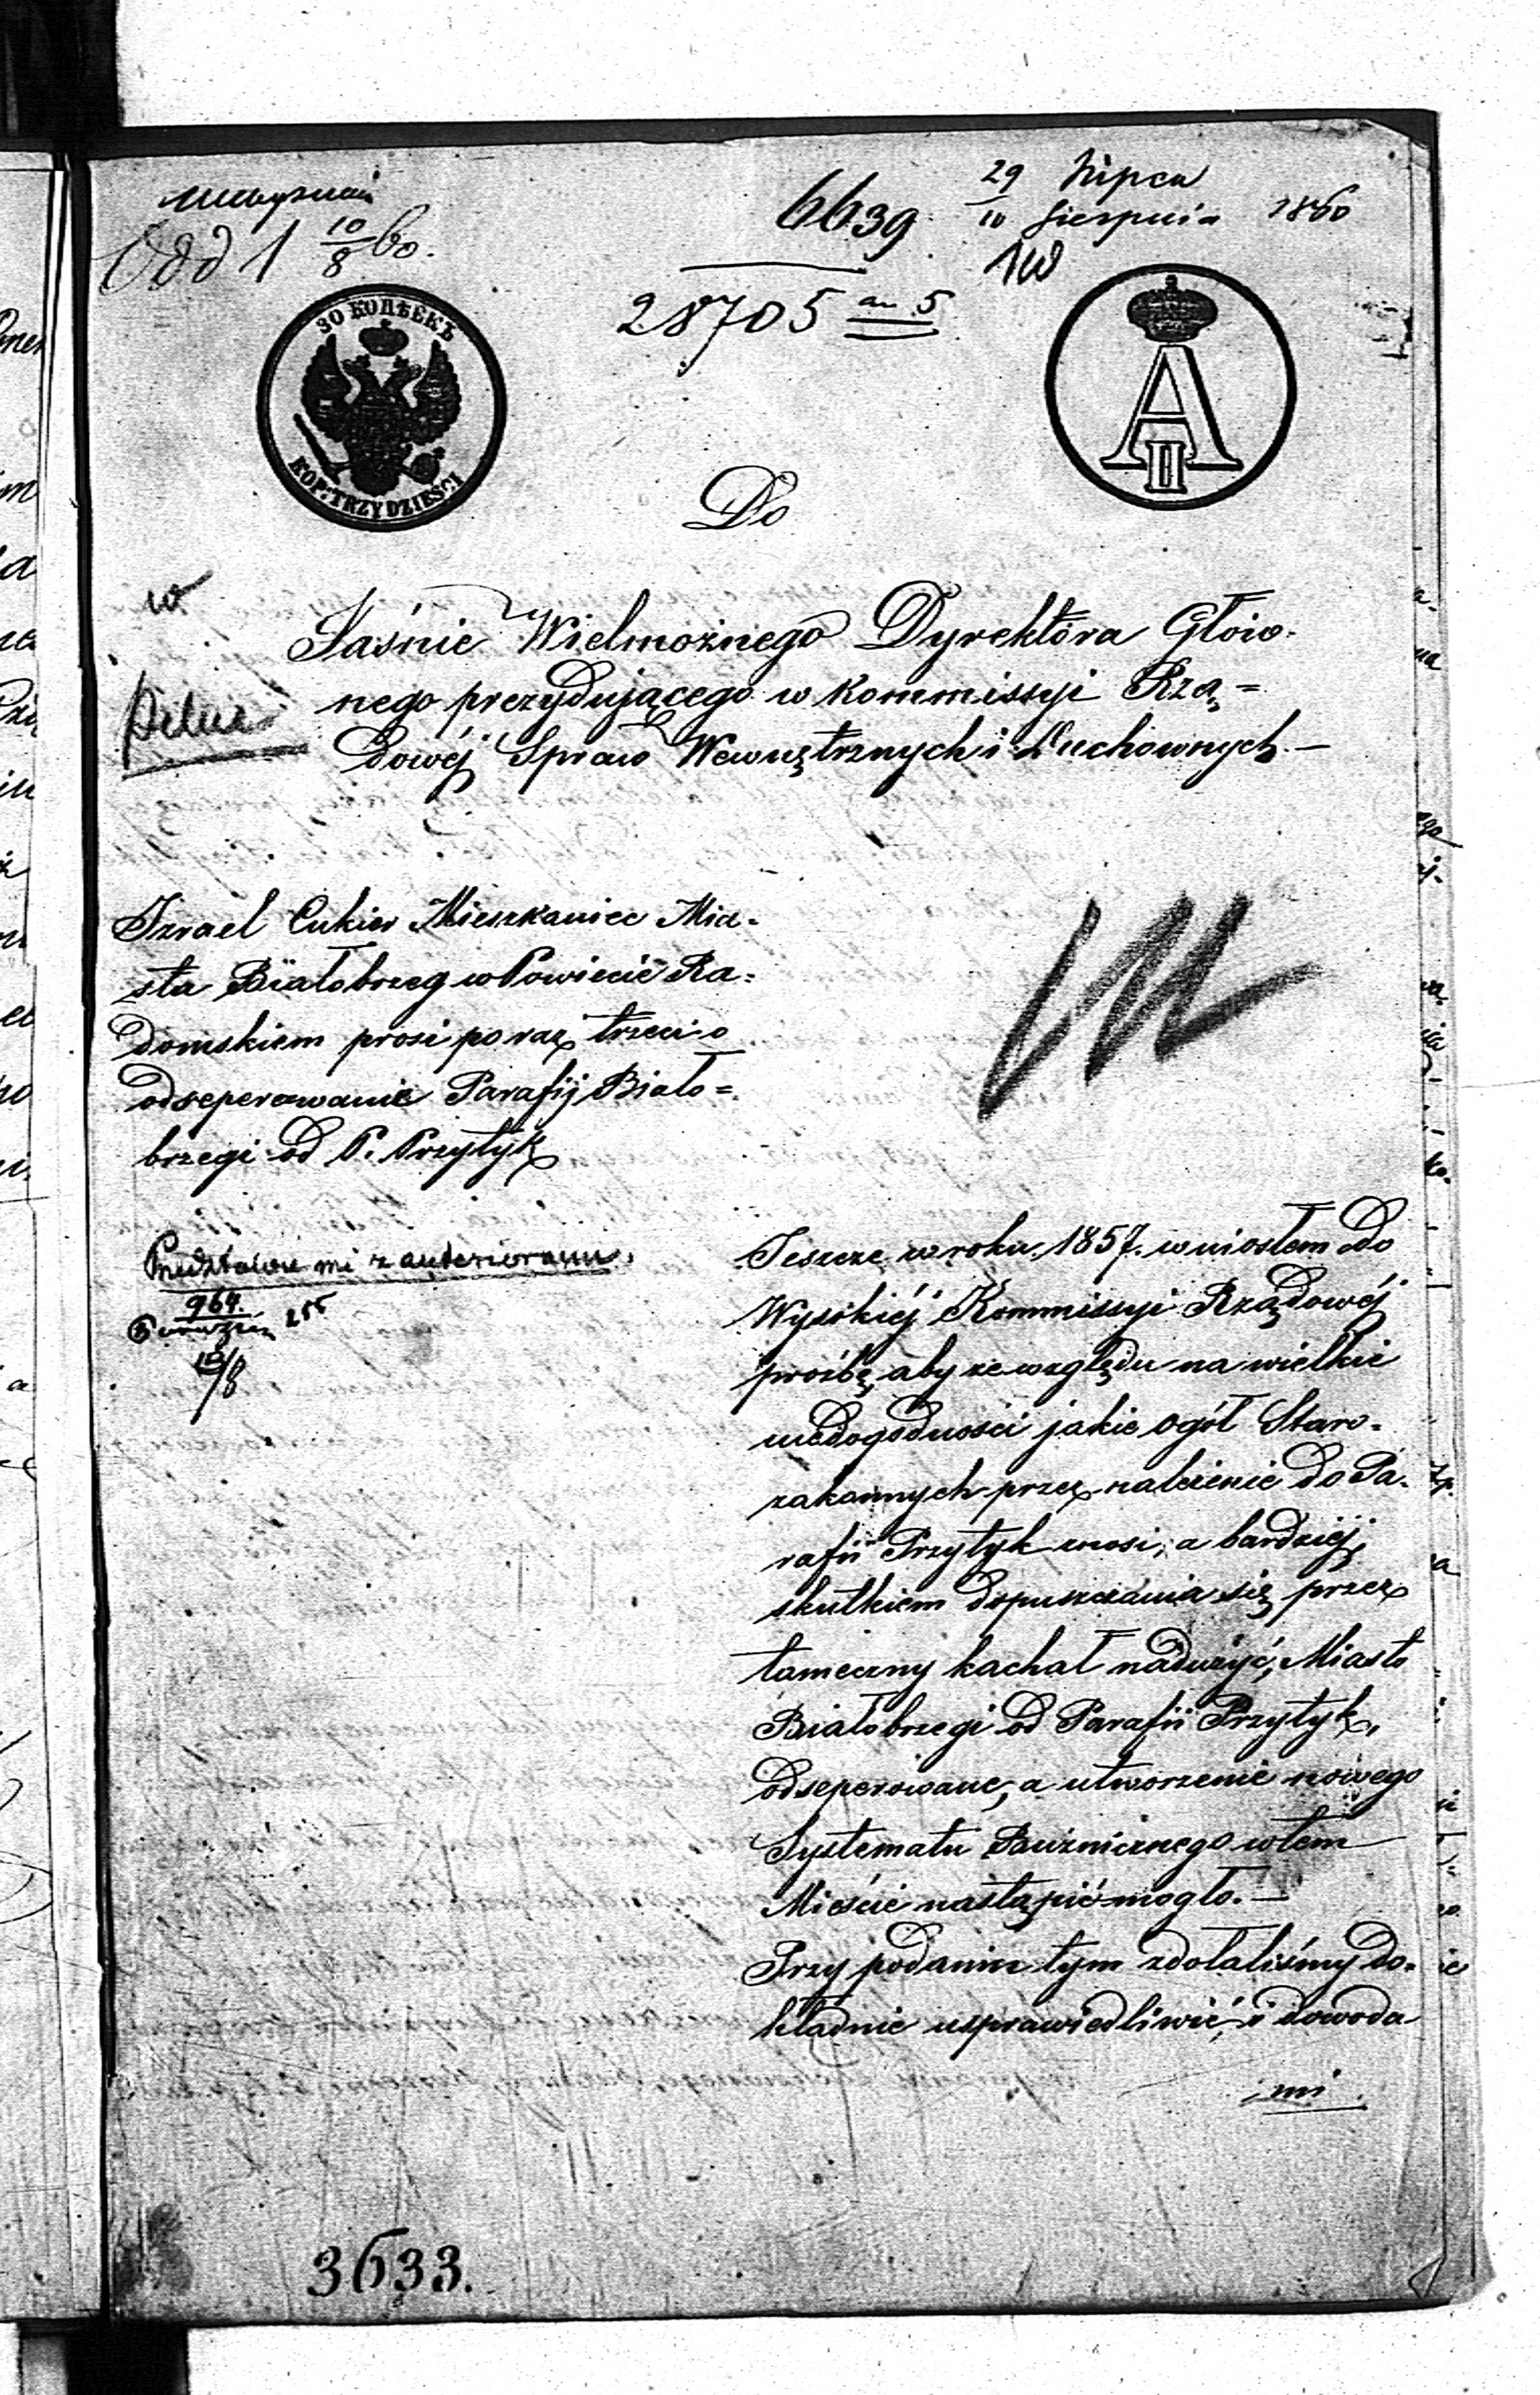 Odd 1 10/8 60.
6639
29 Lipca
10 Sierpnia 1860
28705 an 5
30 КОПѢЕКЪ
KOP: TRZYDZIEŚCI
A II
Do
Jaśnie Wielmożnego Dyrektora Głów-
nego prezydującego w Kommissyi Rzą=
dowéj Spraw Wewnętrznych i Duchownych.—
w
Pilne
Izrael Cukier Mieszkaniec Mia-
sta Białobrzeg w Powiecie Ra-
domskiem prosi po raz trzeci o
odseperowanie Parafij Biało=
brzegi od P. Przytyk
mi z anteriorami.
964.
255
12/8
Jeszcze w roku 1857. wniosłem do
Wysokiéj Kommissyi Rządowéj
prośbę, aby ze względu na wielkie
niedogodności jakie ogół Staro-
zakonnych przez należenie do Pa-
rafii Przytyk znosi, a bardziéj,
skutkiem dopuszczania się przez
tameczny kachał nadużyć, Miasto
Białobrzegi od Parafii Przytyk,
odseperowane, a utworzenie nowego
Systematu Bużnicznego w tem
Mieście nastąpić mogło.—
Przy podaniu tym zdołaliśmy do-
kładnie usprawiedliwić, i dowoda
mi
3633.